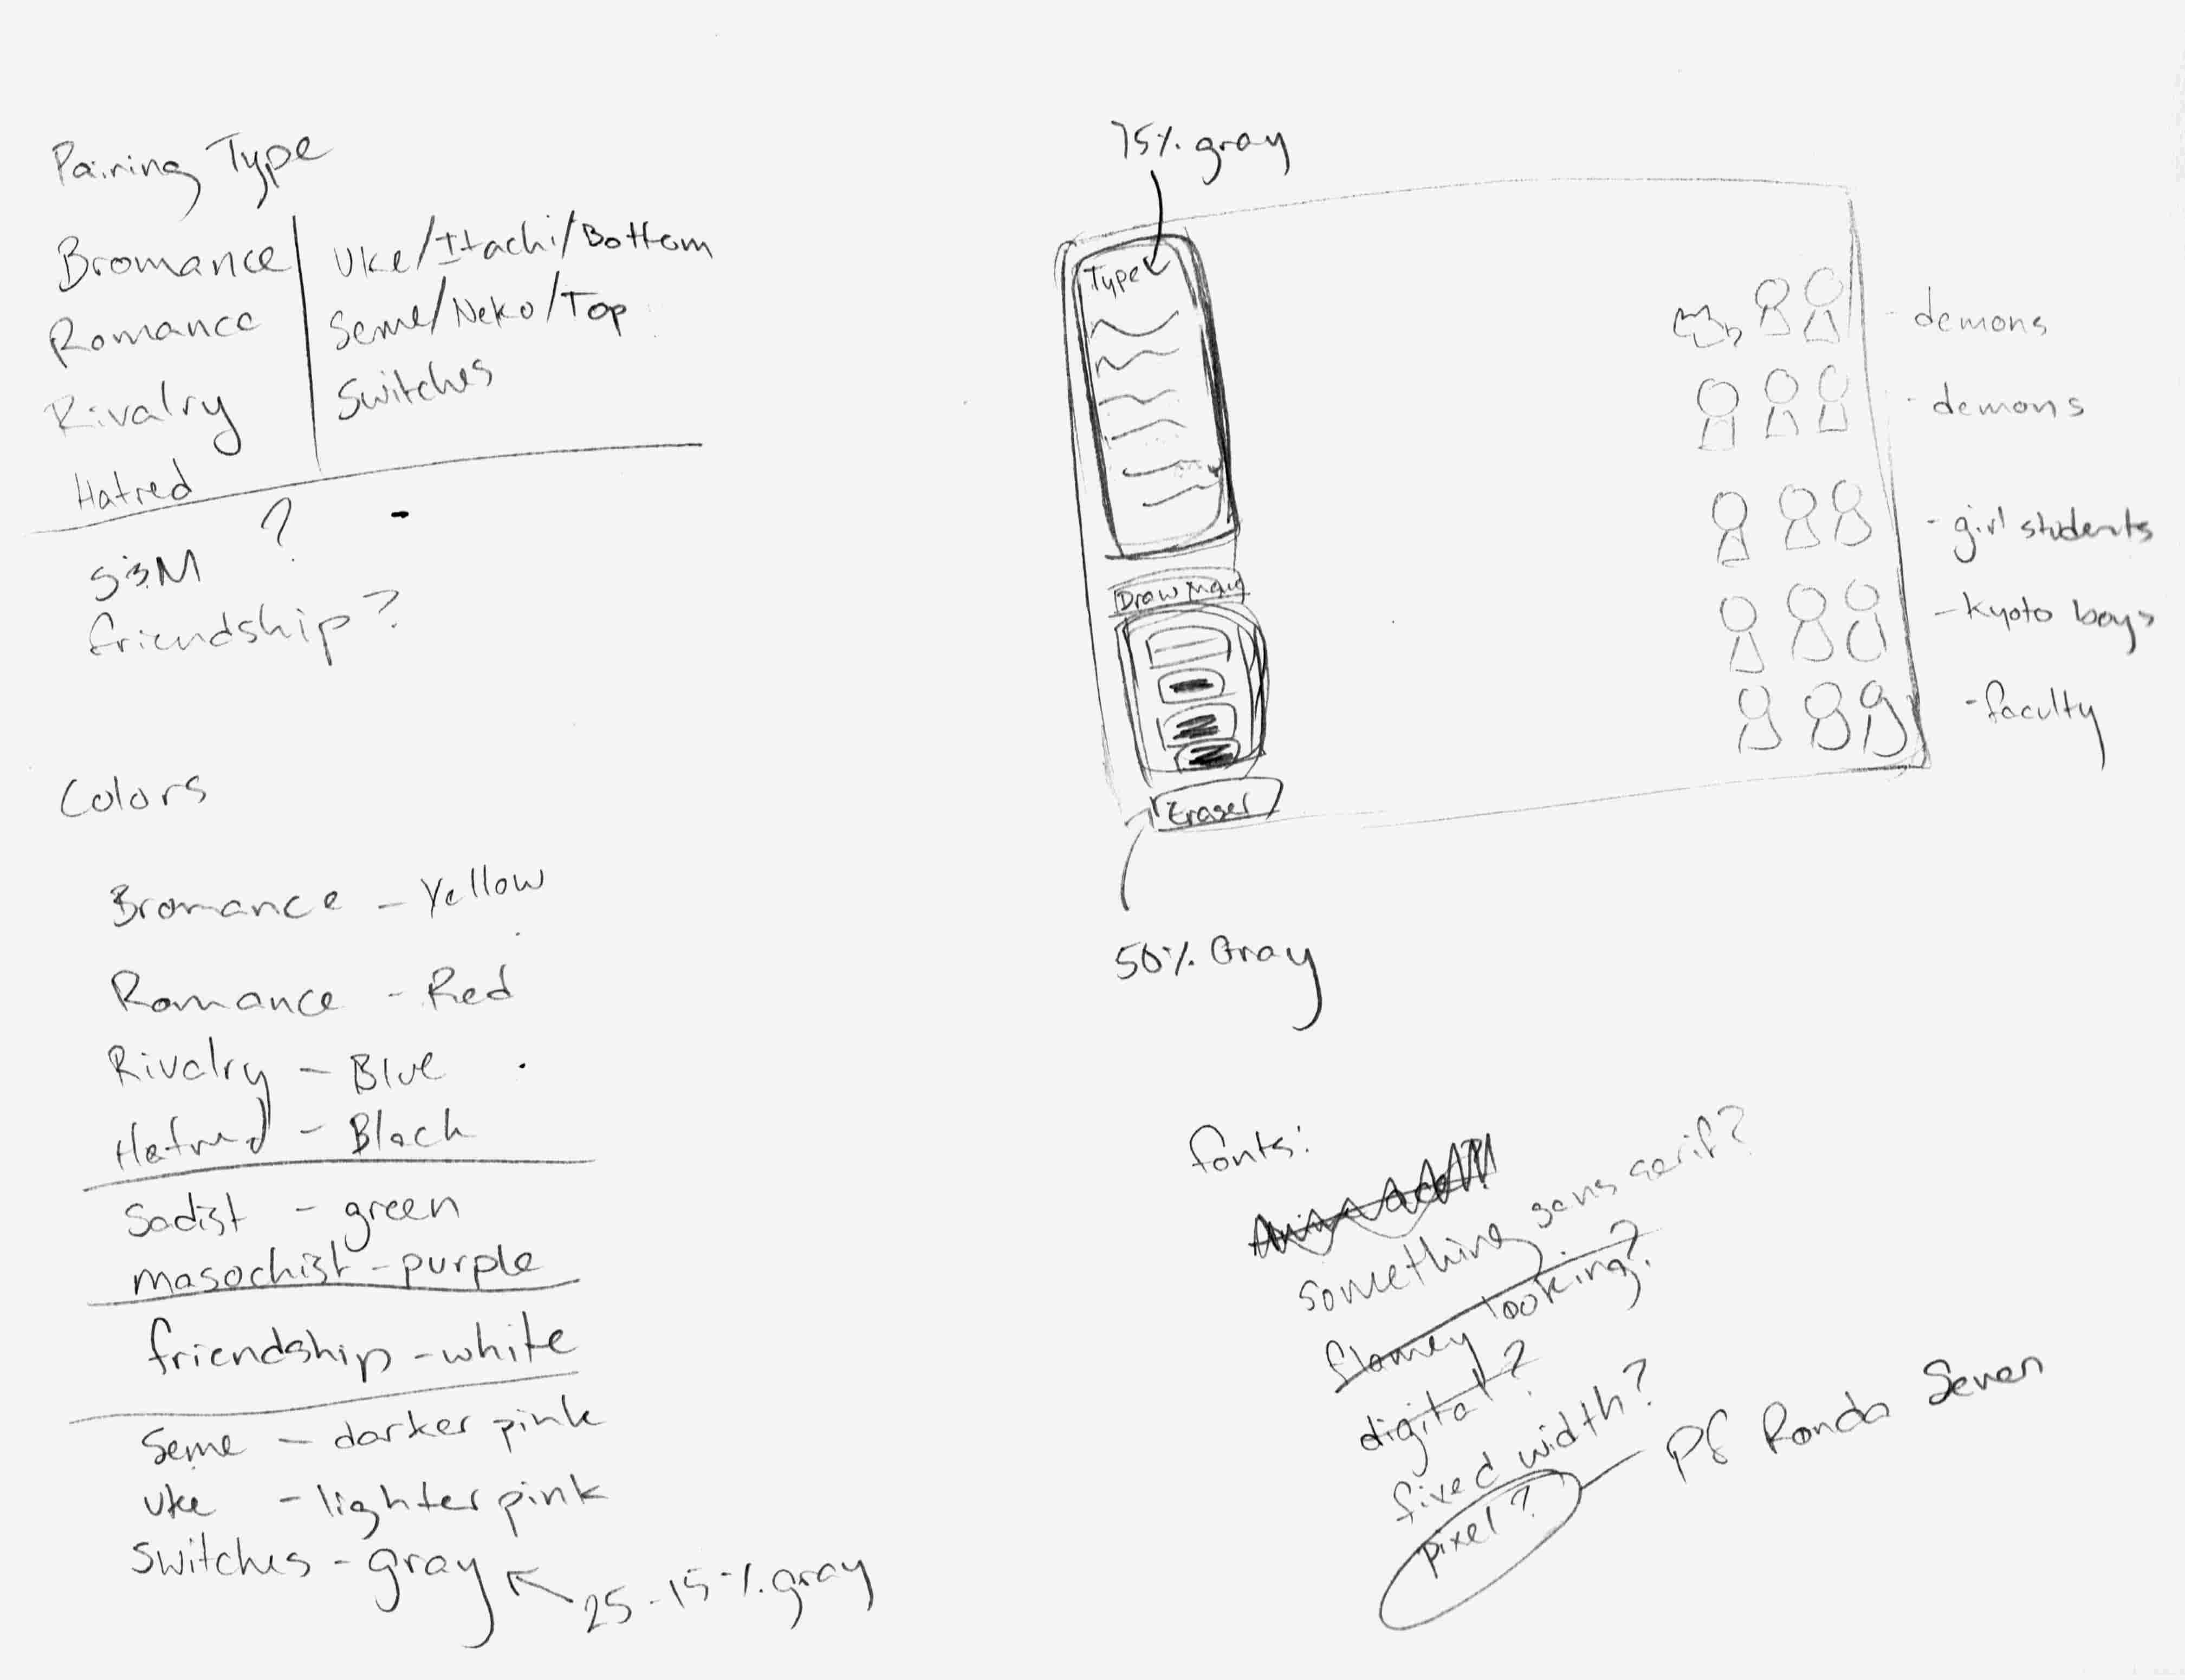 Pairing Type
Bromance
Romance
Rivalry
Hatred
Uke/Itachi/Bottom
Seme/Neko/Top
Switches
S&M ?
friendship?
Colors
Bromance - Yellow
Romance - Red
Rivalry - Blue
Hatred - Black
Sadist - green
masochist - purple
friendship - white
Seme - darker pink
Uke - lighter pink
Switches - gray
25-15% gray
75% gray
Type
Draw
Eraser
50% Gray
- demons
- demons
- girl students
- Kyoto boys
- faculty
fonts:
something sans serif?
flamey looking?
digital?
fixed width?
pixel?
Pf Ronda Seven